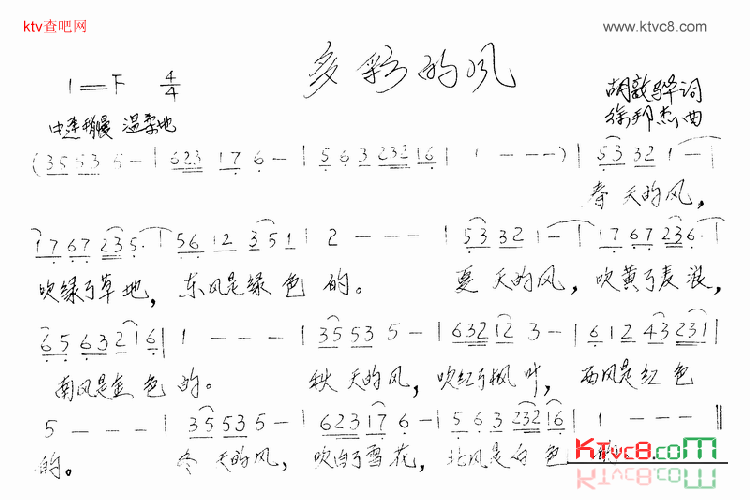 ktv查吧网
www.ktvc8.com
多彩的风
1=F 4/4
胡敦骅词
中速稍慢 温柔地
徐邦杰曲
(35 53 5 - | 623 17 6 - | 5 6 3 232 16 | 1 - - - )| 53 32 1 - |
春天的风，
17 67 235 · | 56 12 351 | 2 - - - | 53 32 1 - | 17 67 235 · |
吹绿了草地，东风是绿色的。 夏天的风，吹黄了麦浪，
65 63 216 | 1 - - - | 35 53 5 - | 632 12 3 - | 612 43 231 |
南风是金色的。 秋天的风，吹红了枫叶，西风是红色
5 - - - | 35 53 5 - | 623 17 6 - | 5 6 3 232 16 | 1 - - - ‖
的。 冬天的风，吹白了雪花，北风是白色的
KTvc8.com